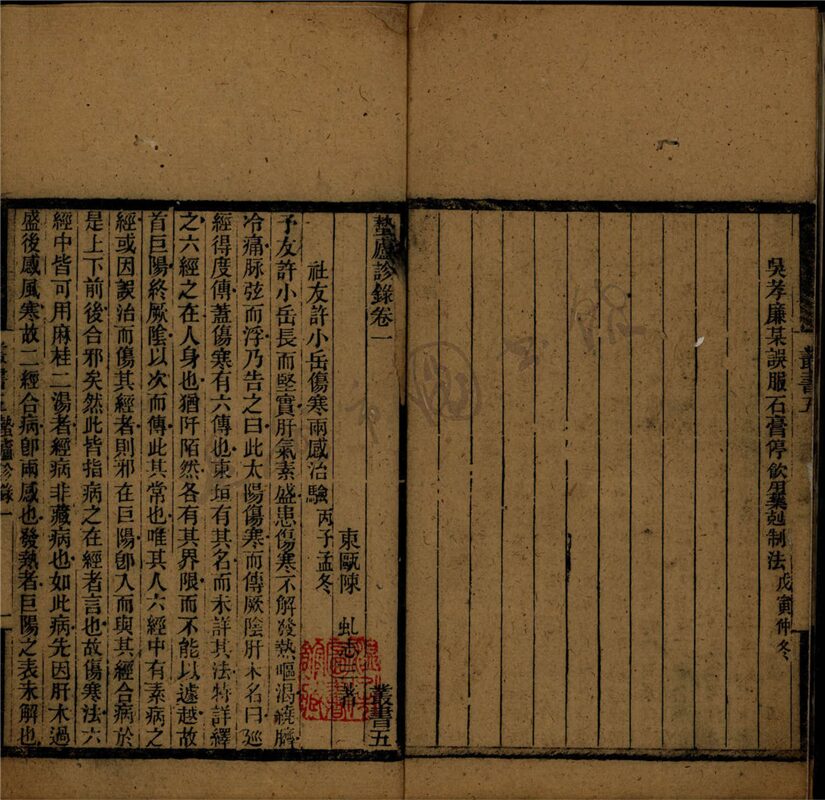 吳孝廉某誤服石膏停飲用藥剋制法 戊寅仲冬
叢書五
蟄廬診錄卷一
叢書五
東甌陳 虬志三著
社友許小岳傷寒兩感治驗 丙子孟冬
予友許小岳長而堅實肝氣素盛患傷寒不解發熱嘔渴繞臍
冷痛脉弦而浮乃告之曰此太陽傷寒而傳厥陰肝木名曰巡
經得度傳蓋傷寒有六傳也東垣有其名而未詳其法特詳繹
之六經之在人身也猶阡陌然各有其界限而不能以遽越故
首巨陽終厥陰以次而傳此其常也唯其人六經中有素病之
經或因誤治而傷其經者則邪在巨陽卽入而與其經合病於
是上下前後合邪矣然此皆指病之在經者言也故傷寒法六
經中皆可用麻桂二湯者經病非藏病也如此病先因肝木過
盛後感風寒故二經合病卽兩感也發熱者巨陽之表未解也
叢書五 蟄廬診錄一
一